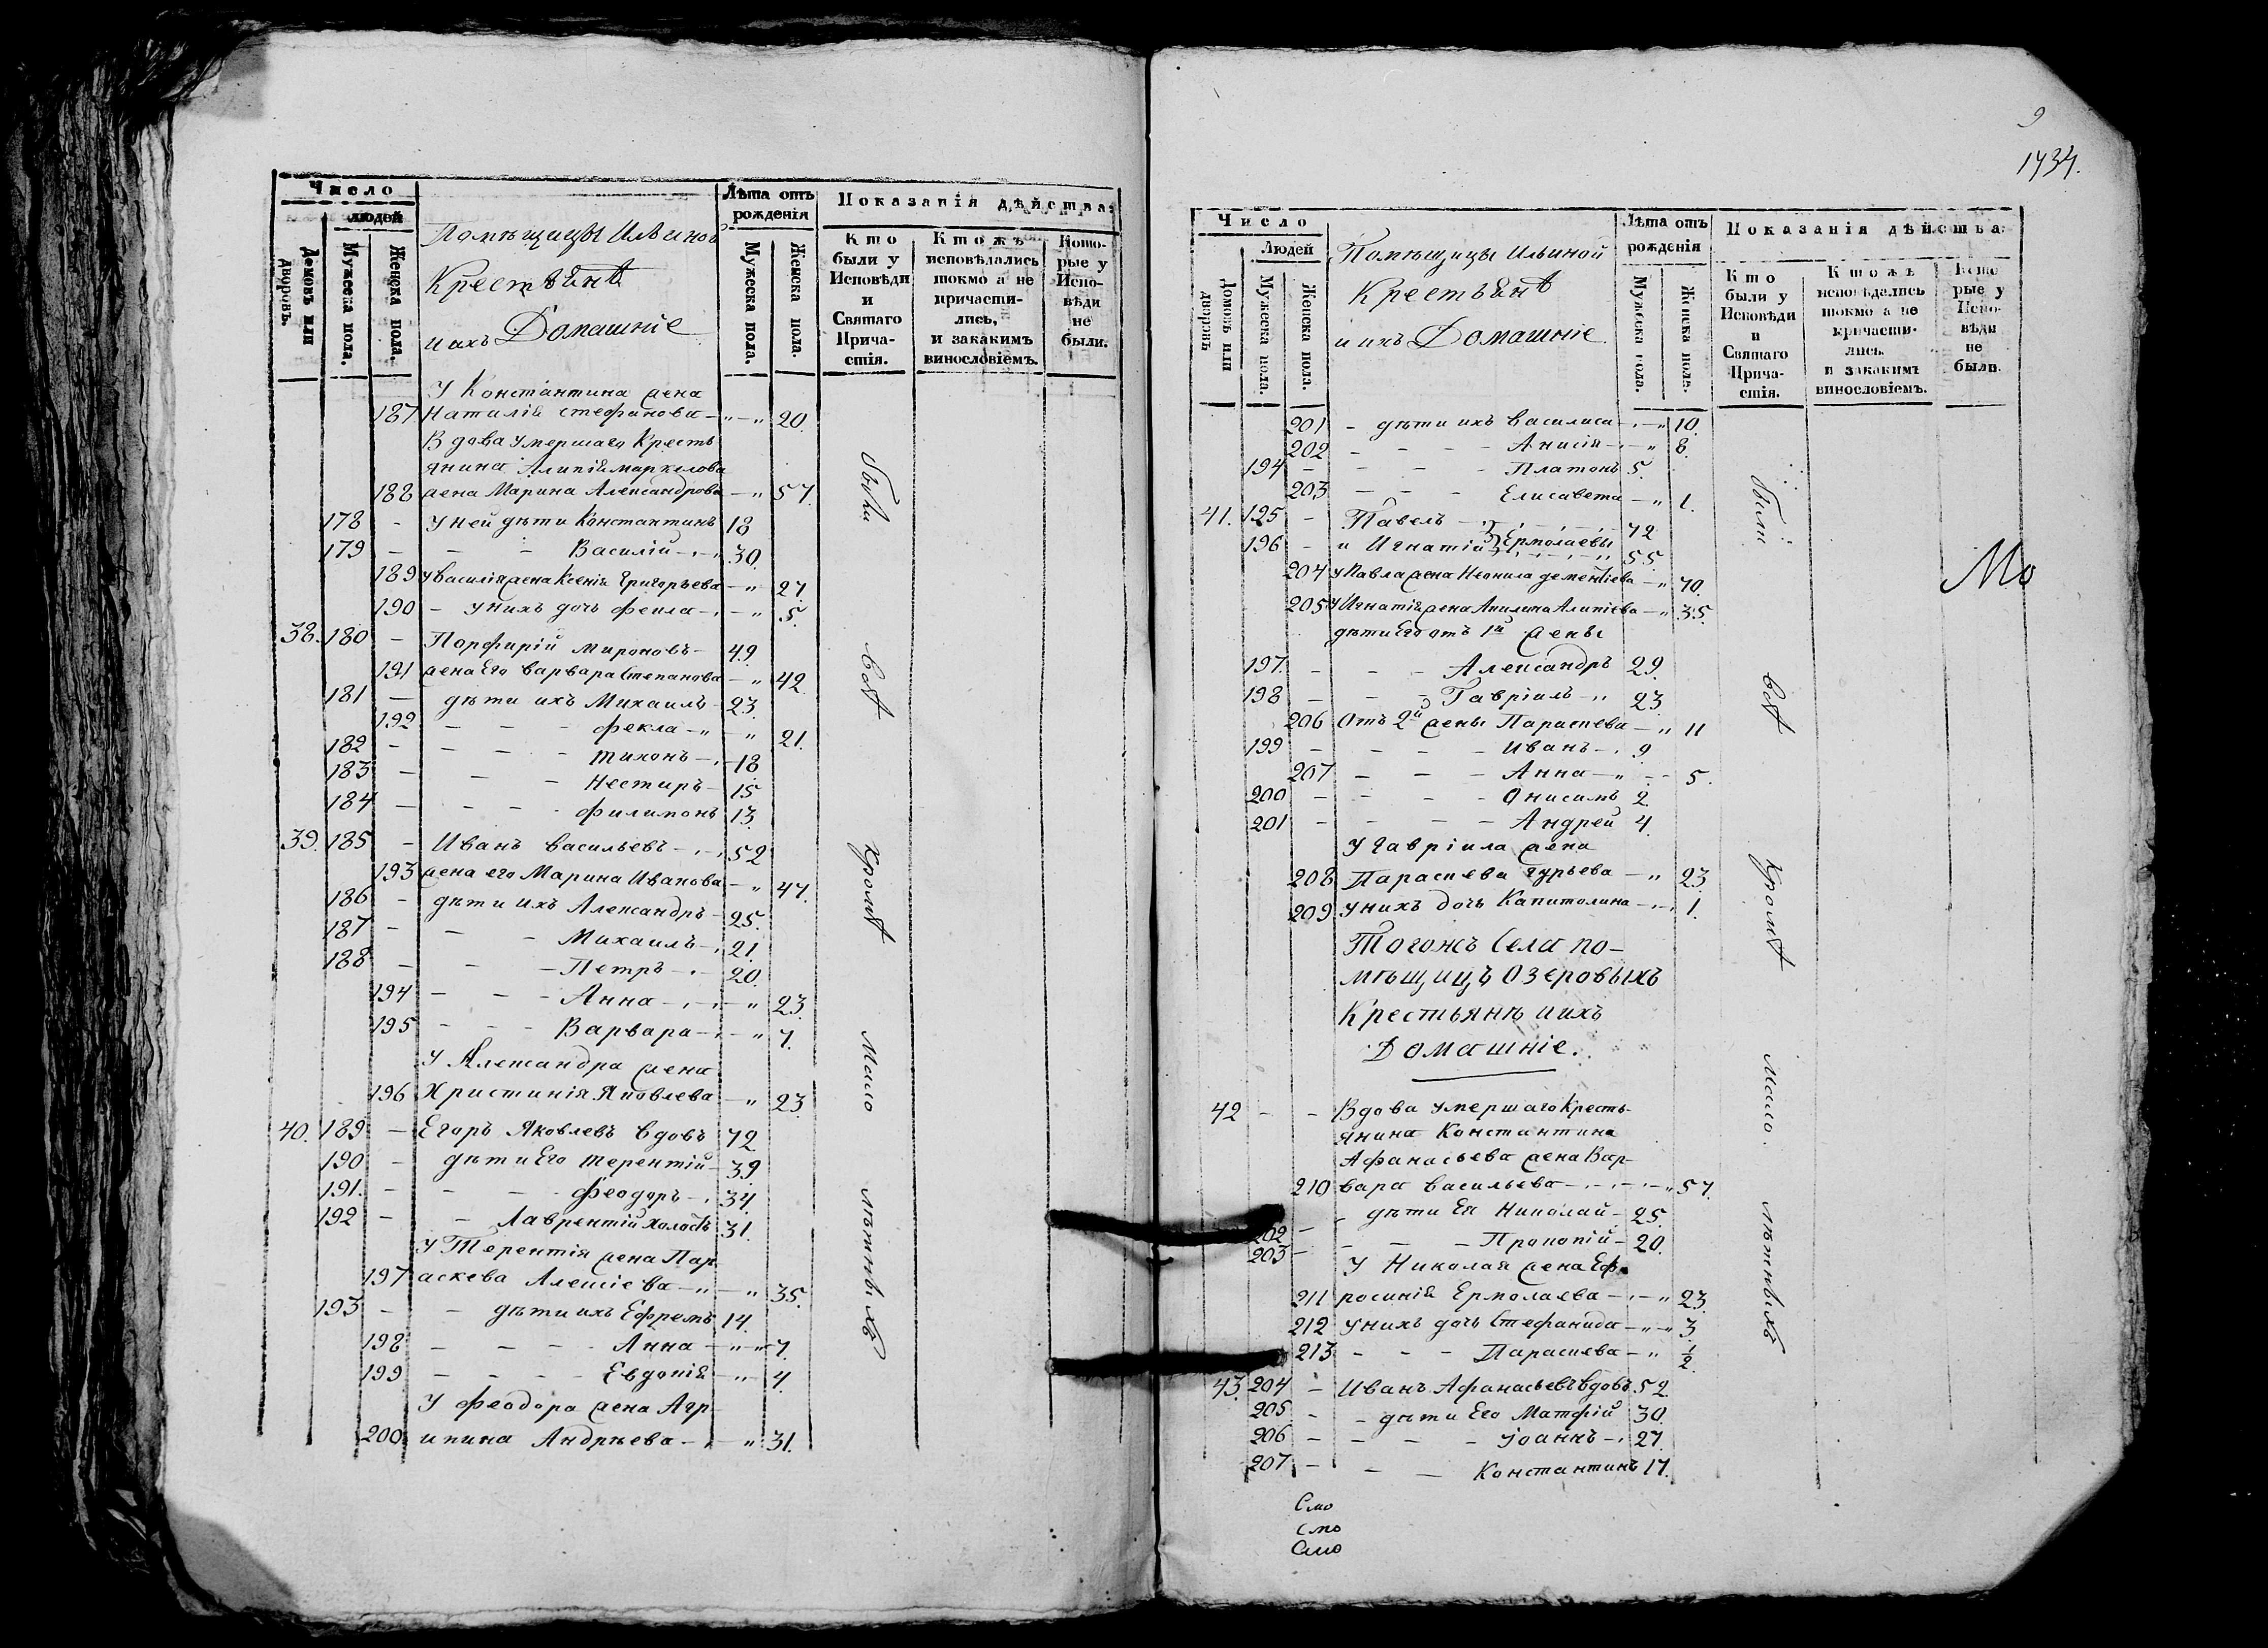 Число
людей
Домовъ или дворовъ.
Мужеска пола.
Женска пола.
Помѣщицы Ильиной
Крестьянѣ
и ихъ Домашніе
Лѣта отъ рожденія
Мужеска пола.
Женска пола.
Показанія дѣйства:
Кто были у Исповѣди и Святаго Прича- стія.
Ктожъ исповѣдались токмо а не причасти- лись, и закакимъ винословіемъ.
Кото- рые у Испо- вѣди не были.
У Константина жена
187 Наталія Стефанова - " - " 20.
Вдова умершаго Кресть
янина Алипія Маркелова
188 жена Марина Александрова - " 57.
178 - У ней дѣти Константинъ 18
179 - - - Василій - " - " 30.
189 у Василія жена Ксенія Григорьева - " 27.
190 - у нихъ дочь Фекла - " - " 5.
38. 180 - Порфирій Мироновъ - 49
191 жена Его Варвара Степанова - " 42.
181 - дѣти ихъ Михаилъ - 23.
192 - - - Фекла - " - " 21.
182 - - - - Тихонъ - " - 18
183 - - - Нестиръ - 15
184 - - - - Филимонъ 13.
39. 185 - Иванъ Васильевъ - " - " 52
193 жена его Марина Иванова - " 47.
186 - дѣти ихъ Александръ - 25.
187 - - - Михаилъ - " 21
188 - - - Петръ - " - 20.
194 - - - Анна - " - " - " 23.
195 - - - Варвара - " - " 7.
У Александра жена
196 Христинія Яковлева - " 23
40. 189 - Егоръ Яковлевъ вдовъ 72
190 - дѣти Его Терентій - 39.
191. - - - Феодоръ - " 34.
192 - - Лаврентій холостъ 31.
У Терентія жена Пар
197 аскева Алексіева - " - " 35.
193 - - дѣти ихъ Ефремъ 14.
198 - - - - Анна - " - " - 7.
199 - - - - Евдокія - " - 4.
У Феодора жена Агр
200. ипина Андрѣева - " - " 31.
были
всѣ
кромѣ
мало
лѣтныхъ
9
1734.
Число
Людей
Домовъ или дворовъ
Мужеска пола
Женска пола.
Помѣщицы Ильиной
Крестьянѣ
и ихъ Домашніе.
Лѣта отъ рожденія
Мужеска пола.
Женска пола.
Показанія дѣйства:
Кто были у Исповѣди и Святаго Прича- стія.
Ктожъ исповѣдались токмо а не причасти- лись. и закакимъ винословіемъ.
Кото рые у Испо- вѣди не были.
201 - дѣти ихъ Василиса - " - " 10.
202 - - - - Анисія - " - " 8.
194 - - - - Платонъ 5.
203 - - - Елисавета - " 1.
41. 195 - Павелъ - 72
196 - и Игнатій Ермолаевы 55.
204 у Павла жена Неонила Дементіева - " 70.
205 у Игнатія жена Акилина Алипіева - " 35.
дѣти Его отъ 1й жены
197. - - - Александръ 29.
198 - - - Гавріилъ - " 23
206 Отъ 2й жены Параскева - " 11
199 - - - - Иванъ - " 9
207 - - - Анна - " - - 5.
200 - - - - Онисимъ 2.
201 - - - - Андрей 4.
У Гавріила жена
208 Параскева Гурьева - " 23
209 у нихъ дочь Капитолина - " - " 1.
Тогожъ Села по-
мѣщицъ Озеровыхъ
Крестьянѣ и ихъ
Домашніе.
42 - - Вдова умершаго Кресть-
янина Константина
Афанасьева жена Вар-
210 вара Васильева - " - " - " 57.
202 - - дѣти Ея Николай - 25.
203 - - - - Прокопій - 20.
У Николая жена Еф-
211 росинія Ермолаева - " - " 23.
212 у нихъ дочь Стефанида - " - " 3.
213 - - - Параскева - " 1/2.
43. 204 - Иванъ Афанасьевъ вдовъ 52.
205 - - дѣти Его Матфій 30.
206 - - - - Іоаннъ - " 27.
207 - - - Константинъ 17.
были
всѣ
кромѣ
мало
лѣтныхъ
Мо
Смо
Смо
Смо